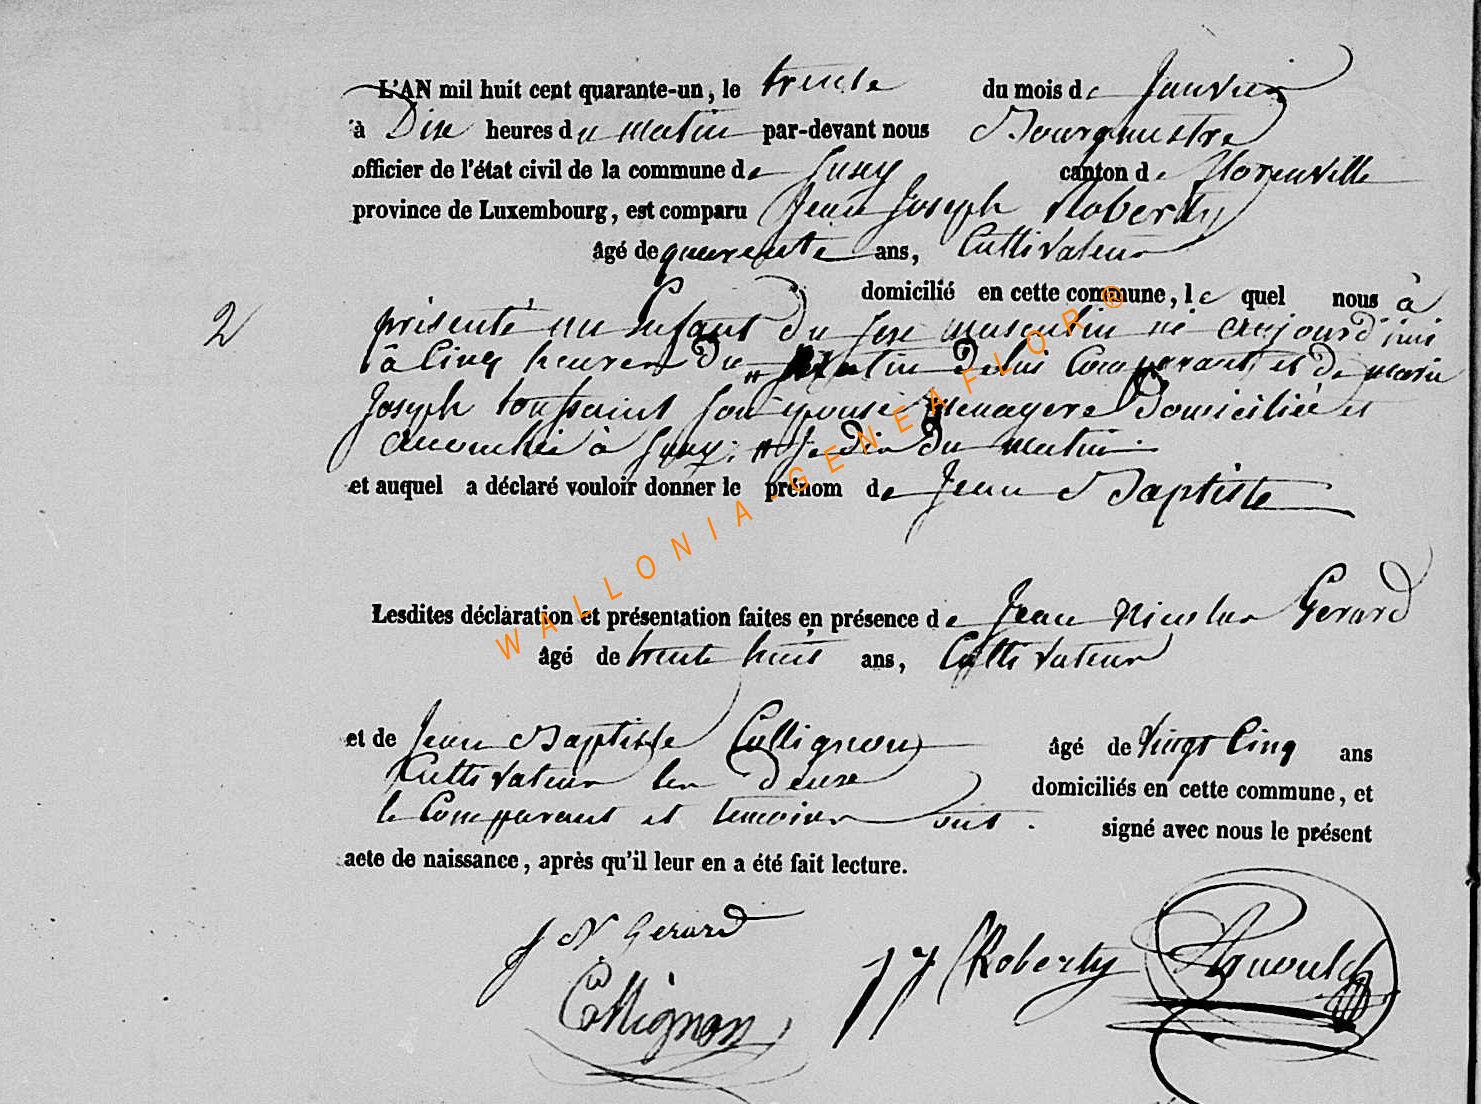 L'AN mil huit cent quarante-un, le trente du mois de Janvier
à Dix heures du matin par-devant nous Bourgmestre
officier de l'état civil de la commune de Suxy canton de Florenville
province de Luxembourg, est comparu Jean Joseph Roberty
âgé de quarente ans, Cultivateur
domicilié en cette commune, le quel nous à
2
présenté un Enfant du sexe masculin né aujourd'hui
à Cinq heures du matin de lui Comparant, et de marie
Joseph toussaint son épouse menagere Domiciliée et
accouchée à Suxy; du matin
et auquel a déclaré vouloir donner le prénom de Jean Baptiste
Lesdites déclaration et présentation faites en présence de Jean Nicolas Gerard
âgé de trente huit ans, Cultivateur
et de Jean Baptiste Collignon âgé de vingt Cinq ans
Cultivateur les deux domiciliés en cette commune, et
le Comparant et temoins ont signé avec nous le présent
acte de naissance, après qu'il leur en a été fait lecture.
J N Gerard
JJ Roberty
Collignon
WALLONIA-GENEAFLOR®